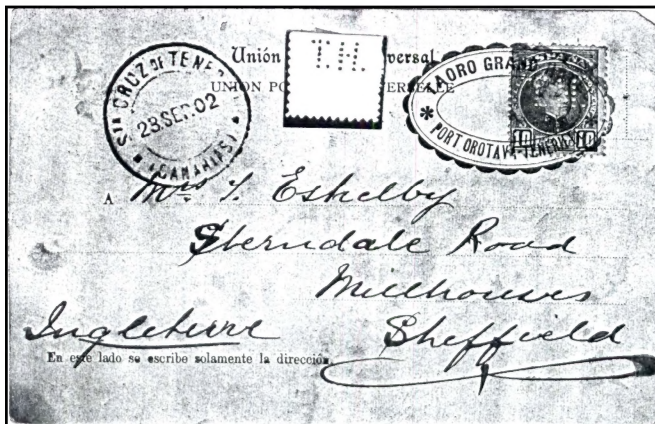 Unión versal
T.H.
UNION PO ERSELLE
STA CRUZ DE TENE
23.SEP.02
(CANARIAS)
TAORO GRAND
PORT OROTAVA-TENERIFE
10 10
A Mrs Eshelby
Sterndale Road
Millhouses
Sheffield
Ingleterre
En este lado se escribe solamente la dirección